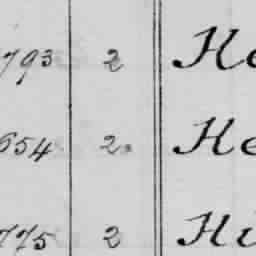 793 2 He
654 2. He
775 2 Hi